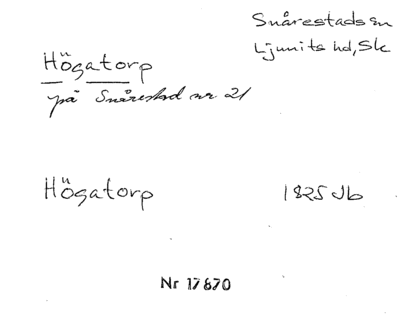 Snårestads sn
Ljunits hd, Sk
Högatorp
på Snårestad nr 21
Högatorp 1825 Jb
Nr 17870